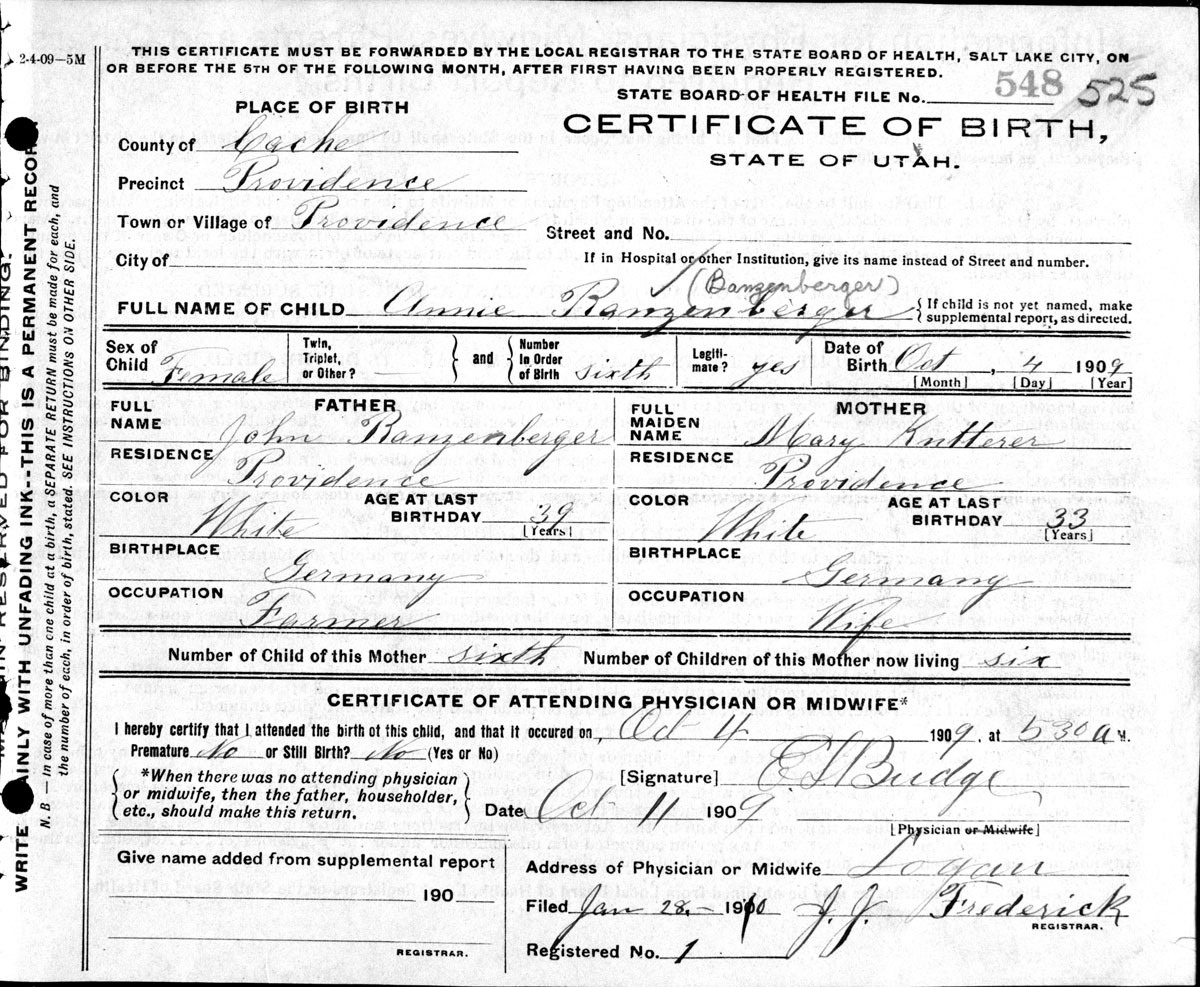 2-4-09—5M
THIS CERTIFICATE MUST BE FORWARDED BY THE LOCAL REGISTRAR TO THE STATE BOARD OF HEALTH, SALT LAKE CITY, ON
OR BEFORE THE 5TH OF THE FOLLOWING MONTH, AFTER FIRST HAVING BEEN PROPERLY REGISTERED.
STATE BOARD OF HEALTH FILE No. 548 525
PLACE OF BIRTH
CERTIFICATE OF BIRTH,
STATE OF UTAH.
County of Cache
Precinct Providence
Town or Village of Providence
Street and No.
City of
If in Hospital or other Institution, give its name instead of Street and number.
(Banzenberger)
FULL NAME OF CHILD Annie Ranzenberger { If child is not yet named, make supplemental report, as directed.
Sex of Child Female Twin, Triplet, or Other? } and { Number In Order of Birth sixth Legiti-mate? yes Date of Birth Oct, 4 1909
[Month] [Day] [Year]
FATHER
FULL NAME John Ranzenberger
RESIDENCE Providence
COLOR White AGE AT LAST BIRTHDAY 39 [Years]
BIRTHPLACE Germany
OCCUPATION Farmer
MOTHER
FULL MAIDEN NAME Mary Knitterer
RESIDENCE Providence
COLOR White AGE AT LAST BIRTHDAY 33 [Years]
BIRTHPLACE Germany
OCCUPATION Wife
Number of Child of this Mother sixth Number of Children of this Mother now living six
CERTIFICATE OF ATTENDING PHYSICIAN OR MIDWIFE*
I hereby certify that I attended the birth of this child, and that it occured on, Oct 4 1909, at 530 a M.
Premature No or Still Birth? No (Yes or No)
*When there was no attending physician
or midwife, then the father, householder,
etc., should make this return.
[Signature] E S Budge
Date Oct 11 1909
[Physician or Midwife]
Give name added from supplemental report
190
REGISTRAR.
Address of Physician or Midwife Logan
Filed Jan 28, - 1910 J. J. Frederick
REGISTRAR.
Registered No. 1
WRITE PLAINLY WITH UNFADING INK—THIS IS A PERMANENT RECORD.
N. B. — In case of more then one child at a birth, a SEPARATE RETURN must be made for each, and
the number of each, in order of birth, stated. SEE INSTRUCTIONS ON OTHER SIDE.
RESERVED FOR BINDING.